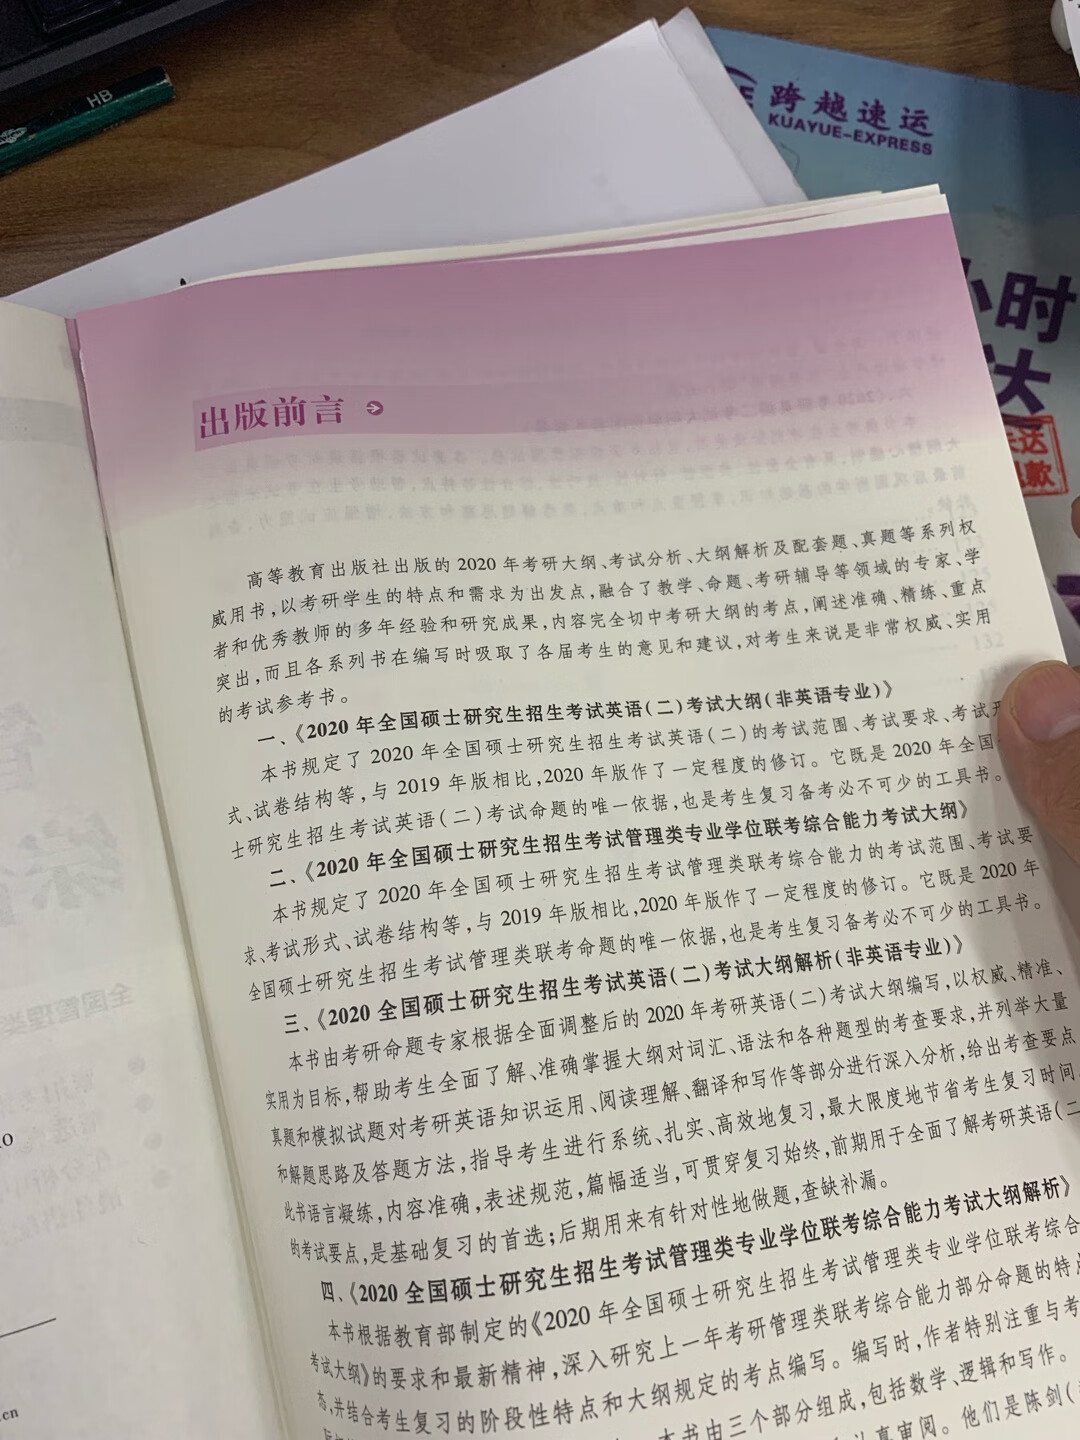 HB
跨越速运
KUAYUE-EXPRESS
小时
达
出版前言
高等教育出版社出版的 2020 年考研大纲、考试分析、大纲解析及配套题、真题等系列权
威用书,以考研学生的特点和需求为出发点,融合了教学、命题、考研辅导等领域的专家、学
者和优秀教师的多年经验和研究成果,内容完全切中考研大纲的考点,阐述准确、精练、重点
突出,而且各系列书在编写时吸取了各届考生的意见和建议,对考生来说是非常权威、实用
的考试参考书。
一、《2020 年全国硕士研究生招生考试英语(二)考试大纲(非英语专业)》
本书规定了 2020 年全国硕士研究生招生考试英语(二)的考试范围、考试要求、考试形
式、试卷结构等,与 2019 年版相比,2020 年版作了一定程度的修订。它既是 2020 年全国
士研究生招生考试英语(二)考试命题的唯一依据,也是考生复习备考必不可少的工具书。
二、《2020 年全国硕士研究生招生考试管理类专业学位联考综合能力考试大纲》
本书规定了 2020 年全国硕士研究生招生考试管理类联考综合能力的考试范围、考试要
求、考试形式、试卷结构等,与 2019 年版相比,2020 年版作了一定程度的修订。它既是 2020 年
全国硕士研究生招生考试管理类联考命题的唯一依据,也是考生复习备考必不可少的工具书。
三、《2020 全国硕士研究生招生考试英语(二)考试大纲解析(非英语专业)》
本书由考研命题专家根据全面调整后的 2020 年考研英语(二)考试大纲编写,以权威、精准、
实用为目标,帮助考生全面了解、准确掌握大纲对词汇、语法和各种题型的考查要求,并列举大量
真题和模拟试题对考研英语知识运用、阅读理解、翻译和写作等部分进行深入分析,给出考查要点
和解题思路及答题方法,指导考生进行系统、扎实、高效地复习,最大限度地节省考生复习时间。
此书语言凝练,内容准确,表述规范,篇幅适当,可贯穿复习始终,前期用于全面了解考研英语(二
的考试要点,是基础复习的首选;后期用来有针对性地做题,查缺补漏。
四、《2020 全国硕士研究生招生考试管理类专业学位联考综合能力考试大纲解析》
本书根据教育部制定的《2020 年全国硕士研究生招生考试管理类专业学位联考综合
考试大纲》的要求和最新精神,深入研究上一年考研管理类联考综合能力部分命题的特点
态,并结合考生复习的阶段性特点和大纲规定的考点编写。编写时,作者特别注重与考
本书由三个部分组成,包括数学、逻辑和写作。
真审阅。他们是陈剑(
.cn